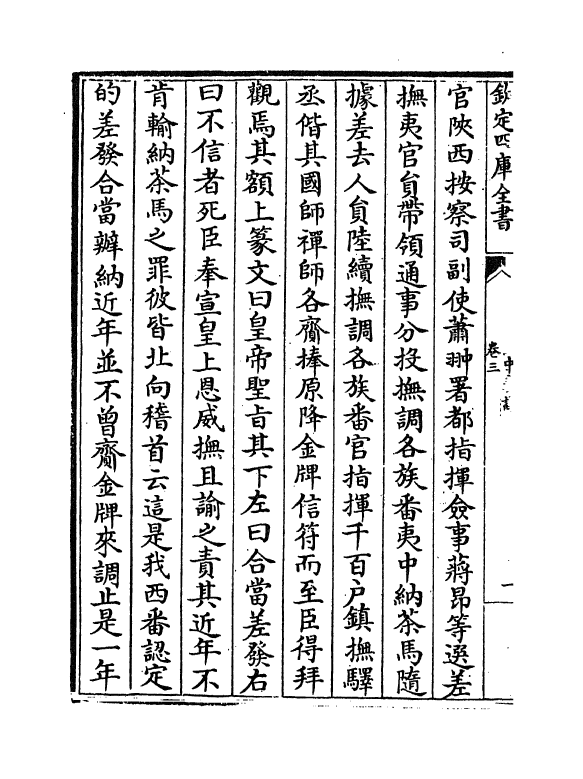 欽定四庫全書
卷三
官陜西按察司副使蕭翀署都指揮僉事蔣昂等選差
撫夷官員帶領通事分投撫調各族番夷中納茶馬隨
據差去人員陸續撫調各族番官指揮千百户鎮撫驛
丞偕其國師禪師各齎捧原降金牌信符而至臣得拜
觀焉其額上篆文曰皇帝聖旨其下左曰合當差發右
曰不信者死臣奉宣皇上恩威撫且諭之責其近年不
肯輸納茶馬之罪彼皆北向稽首云這是我西番認定
的差發合當辦納近年並不曾齎金牌來調止是一年